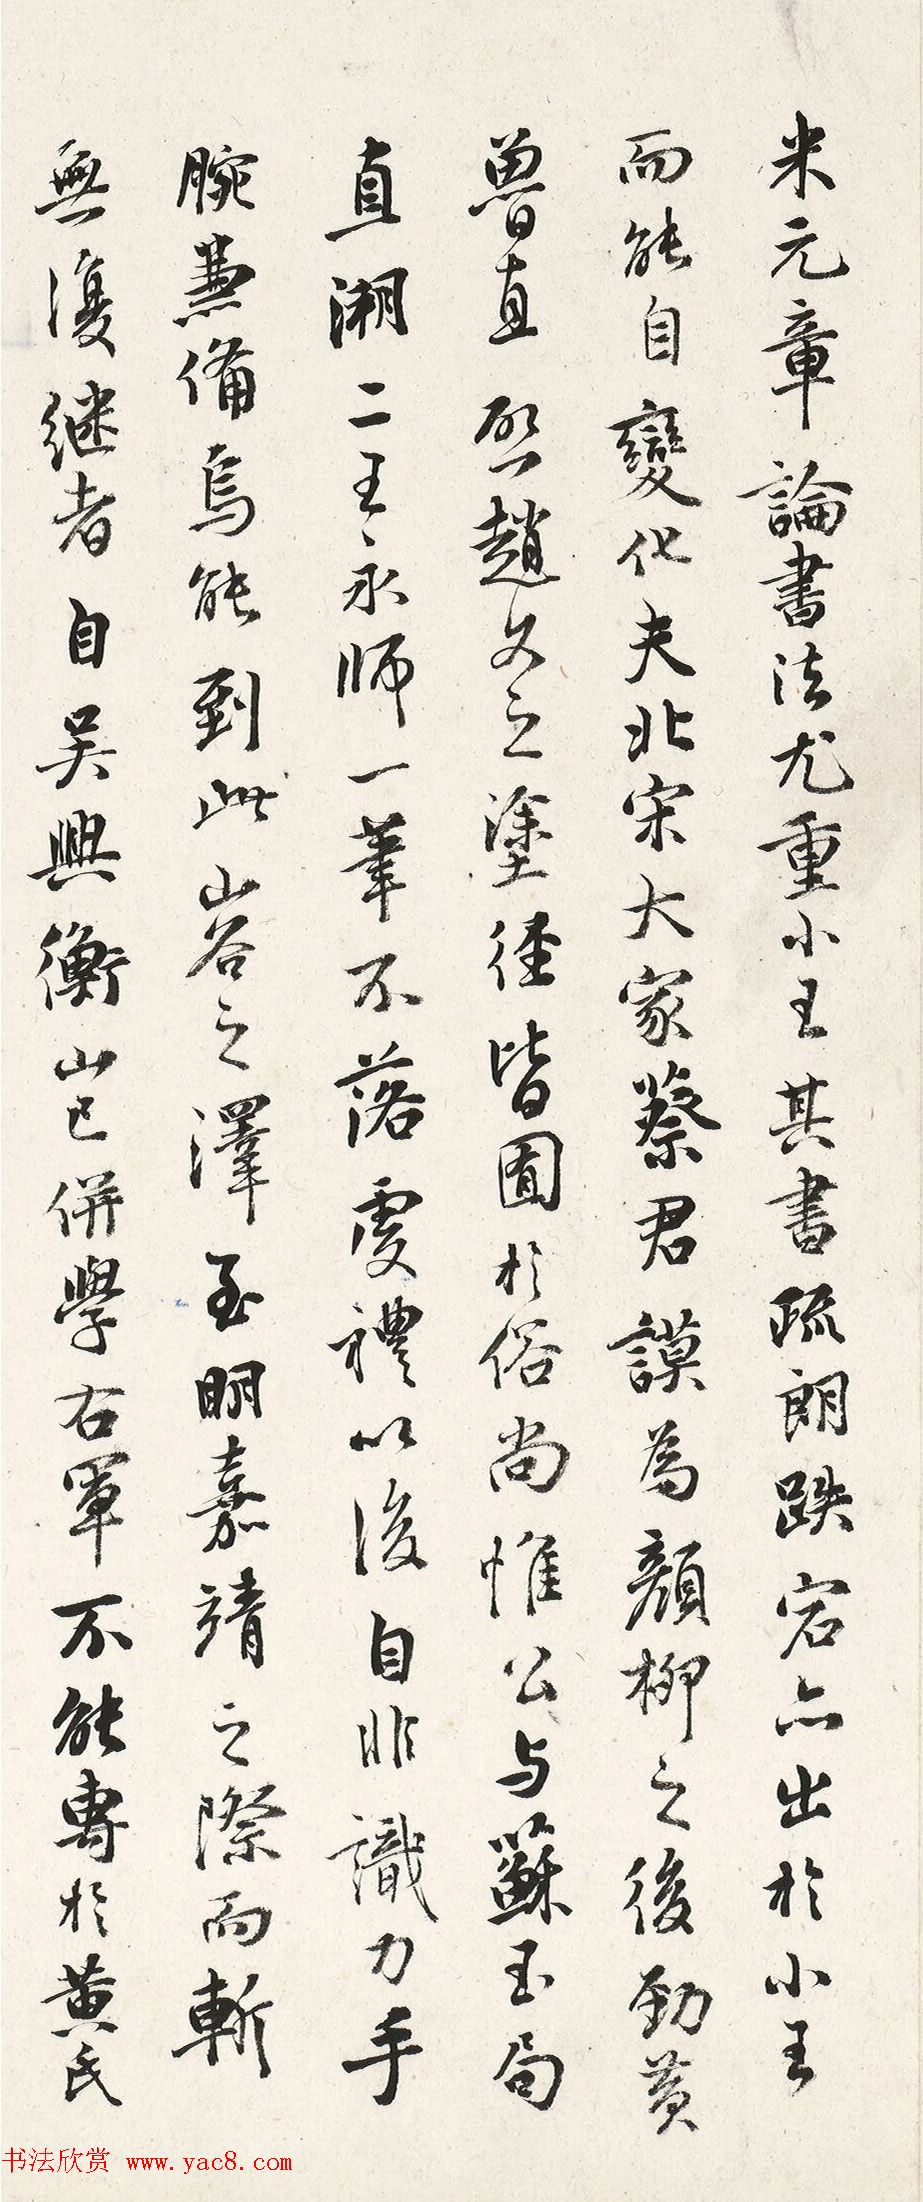 米元章論書法尤重小王其書疏朗跌宕亦出於小王
而能自變化夫北宋大家蔡君謨為顏柳之後勁黃
魯直啟趙文之塗徑皆囿於俗尚惟公与蘇玉局
直溯二王永師一筆不落虞禮以後自非識力手
腕兼備烏能到此山谷之澤至明嘉靖之際而斬
無復継者自吳興衡山已併學右軍不能專於黃氏
书法欣赏 www.yac8.com